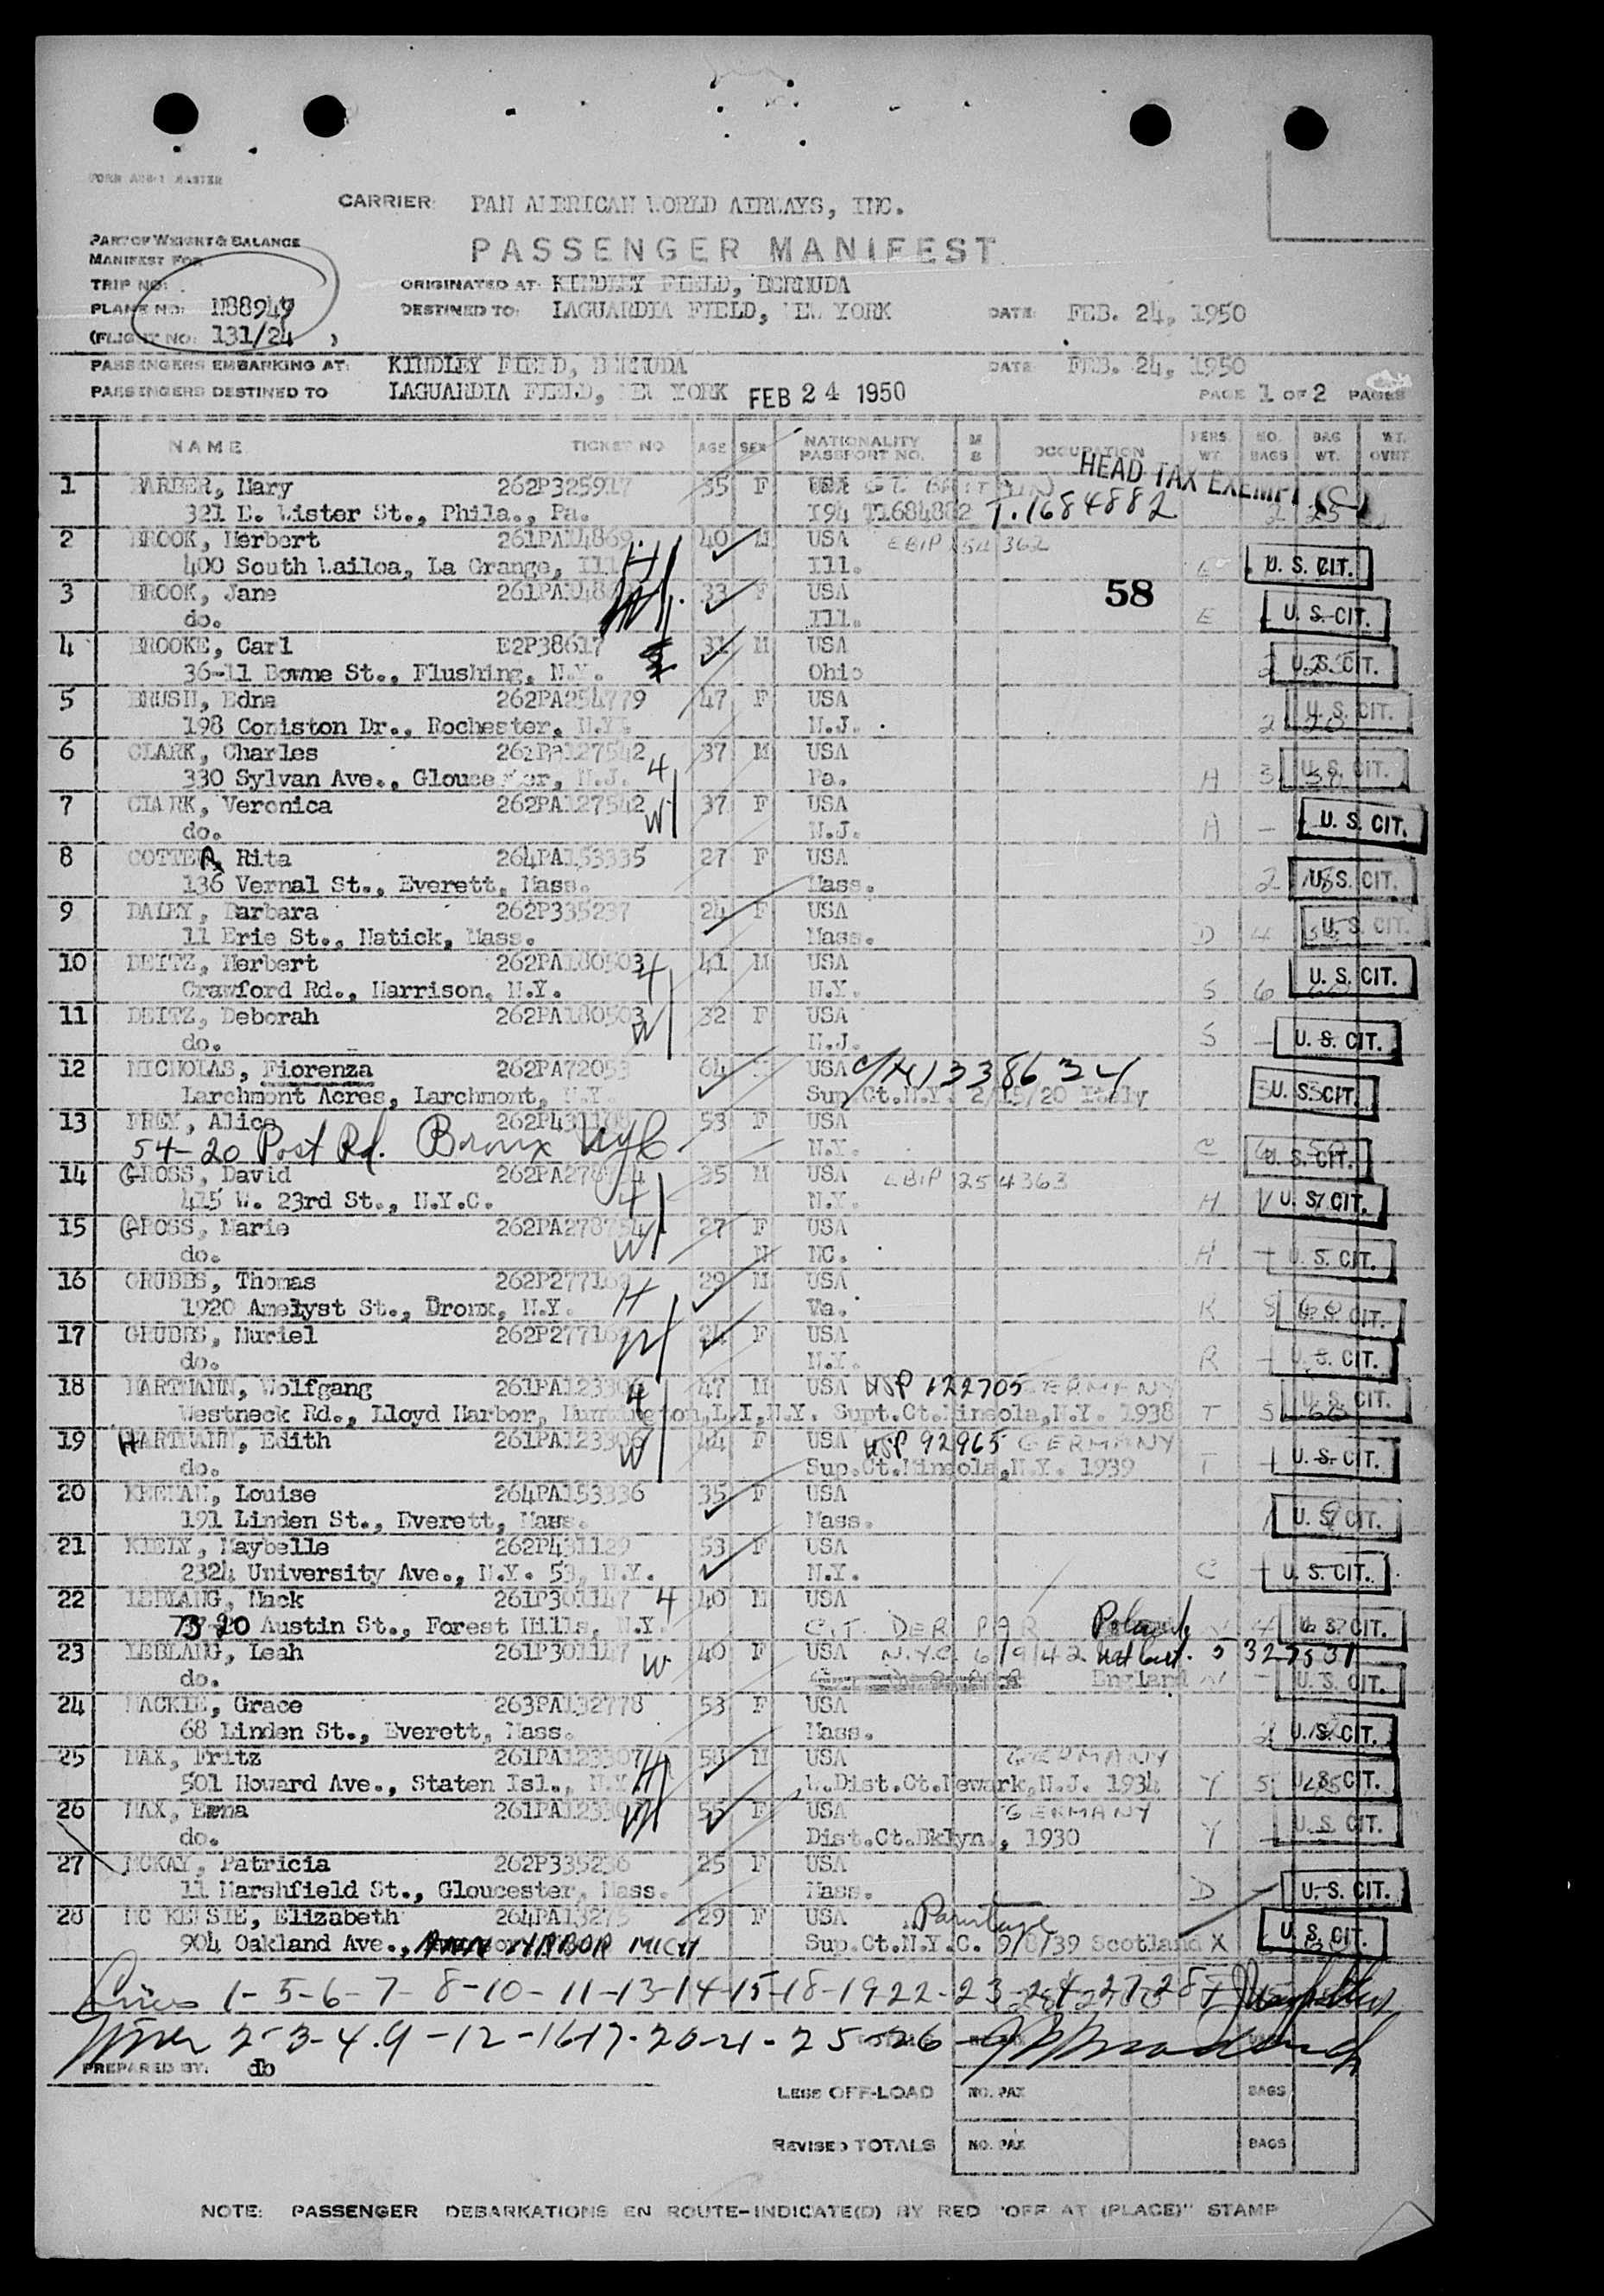 FORM MASTER
CARRIER: PAN AMERICAN WORLD AIRWAYS, INC.
PART OF WEIGHT & BALANCE
MANIFEST FOR
PASSENGER MANIFEST
TRIP NO: ORIGINATED AT: KINDLEY FIELD, BERMUDA
PLANE NO: N88949 DESTINED TO: LAGUARDIA FIELD, NEW YORK DATE: FEB. 24, 1950
(FLIGHT NO: 131/24 )
PASSENGERS EMBARKING AT: KINDLEY FIELD, BERMUDA DATE: FEB. 24, 1950
PASSENGERS DESTINED TO LAGUARDIA FIELD, NEW YORK FEB 24 1950 PAGE 1 OF 2 PAGES
NAME TICKET NO AGE SEX NATIONALITY PASSPORT NO. M S OCCUPATION PERS. WT. NO. BAGS BAG WT. WT. OVNT.
HEAD TAX EXEMPT
1 BARBER, Mary 262P325917 35 F GT BRITAIN
321 E. Wister St., Phila., Pa. I94 T1684882 T.1684882 2 25
2 BROOK, Herbert 261PA14869 H 40 M USA EBIP 254362
400 South Wailoa, La Grange, Ill. Ill. E U. S. CIT.
3 BROOK, Jane 261PA1486 W 33 F USA 58
do. Ill. E U. S. CIT.
4 BROOKE, Carl E2P38617 31 M USA
36-11 Bowne St., Flushing, N.Y. Ohio 2 U. S. CIT.
5 BRUSH, Edna 262PA254779 47 F USA
198 Coniston Dr., Rochester, N.Y. N.J. 2 20 U. S. CIT.
6 CLARK, Charles 262PA127542 H 37 M USA
330 Sylvan Ave., Gloucester, N.J. Pa. A 3 U. S. CIT.
7 CLARK, Veronica 262PA127542 W 37 F USA
do. N.J. A - U. S. CIT.
8 COTTER, Rita 264PA153335 27 F USA
136 Vernal St., Everett, Mass. Mass. 2 18 U. S. CIT.
9 DALEY, Barbara 262P335237 24 F USA
11 Erie St., Natick, Mass. Mass. D 4 U. S. CIT.
10 DEITZ, Herbert 262PA180503 H 41 M USA
Crawford Rd., Harrison, N.Y. N.Y. S 6 U. S. CIT.
11 DEITZ, Deborah 262PA180503 W 32 F USA
do. N.J. S - U. S. CIT.
12 NICHOLAS, Fiorenza 262PA72053 64 M USA
Larchmont Acres, Larchmont, N.Y. Sup.Ct.N.Y. 2/19/20 Italy 3 U. S. CIT.
13 FREY, Alice 53 F USA
54-20 Post Rd. Bronx NYC N.Y. C 6 U. S. CIT.
14 GROSS, David 262PA278754 H 35 M USA EBIP 254363
415 W. 23rd St., N.Y.C. N.Y. H 1 U. S. CIT.
15 GROSS, Marie 262PA278754 W 27 F USA
do. N NC. H - U. S. CIT.
16 GRUBBS, Thomas 262P277162 H 29 M USA
1920 Amelyst St., Bronx, N.Y. Va. R 5 60 U. S. CIT.
17 GRUBBS, Muriel 262P277162 W 24 F USA
do. N.Y. R - U. S. CIT.
18 HARTMANN, Wolfgang 261PA123306 H 47 M USA USP 122705 GERMANY
Westneck Rd., Lloyd Harbor, Huntington,L.I,N.Y. Supt.Ct.Mineola,N.Y. 1938 T 5 U. S. CIT.
19 HARTMANN, Edith 261PA123306 W 44 F USA USP 92965 GERMANY
do. Sup.Ct.Mineola,N.Y. 1939 T - U. S. CIT.
20 KEENAN, Louise 264PA153336 35 F USA
191 Linden St., Everett, Mass. Mass. U. S. CIT.
21 KIELY, Maybelle 262P431129 53 F USA
2324 University Ave., N.Y. 53, N.Y. N.Y. C - U. S. CIT.
22 LEBLANG, Mack 261P301147 H 40 M USA
Austin St., Forest Hills, N.Y. CIT. DER PAR Poland N 4 U. S. CIT.
23 LEBLANG, Leah 261P301147 W 40 F USA N.Y.C. 6/9/42 Nat Cert. 5327531
do. England N - U. S. CIT.
24 MACKIE, Grace 263PA132778 53 F USA
68 Linden St., Everett, Mass. Mass. 2 U. S. CIT.
25 MAX, Fritz 261PA123307 H 58 M USA GERMANY
501 Howard Ave., Staten Isl., N.Y. U.Dist.Ct.Newark,N.J. 1934 Y 5 U. S. CIT.
26 MAX, Erna 261PA123307 W 55 F USA GERMANY
do. Dist.Ct.Bklyn., 1930 Y - U. S. CIT.
27 MCKAY, Patricia 262P335236 25 F USA
11 Marshfield St., Gloucester, Mass. Mass. D - U. S. CIT.
28 MC KENSIE, Elizabeth 264PA13275 29 F USA Parentage
904 Oakland Ave., ANN ARBOR MICH Sup.Ct.N.Y.C. 9/8/39 Scotland X U. S. CIT.
Lines 1-5-6-7-8-10-11-13-14-15-18-19 22-23-24-27-28
2-3-4.9-12-16 17-20-21-25-26
PREPARED BY: db
LESS OFF-LOAD NO. PAX BAGS
REVISED TOTALS NO. PAX BAGS
NOTE: PASSENGER DEBARKATIONS EN ROUTE-INDICATE(D) BY RED "OFF AT (PLACE)" STAMP